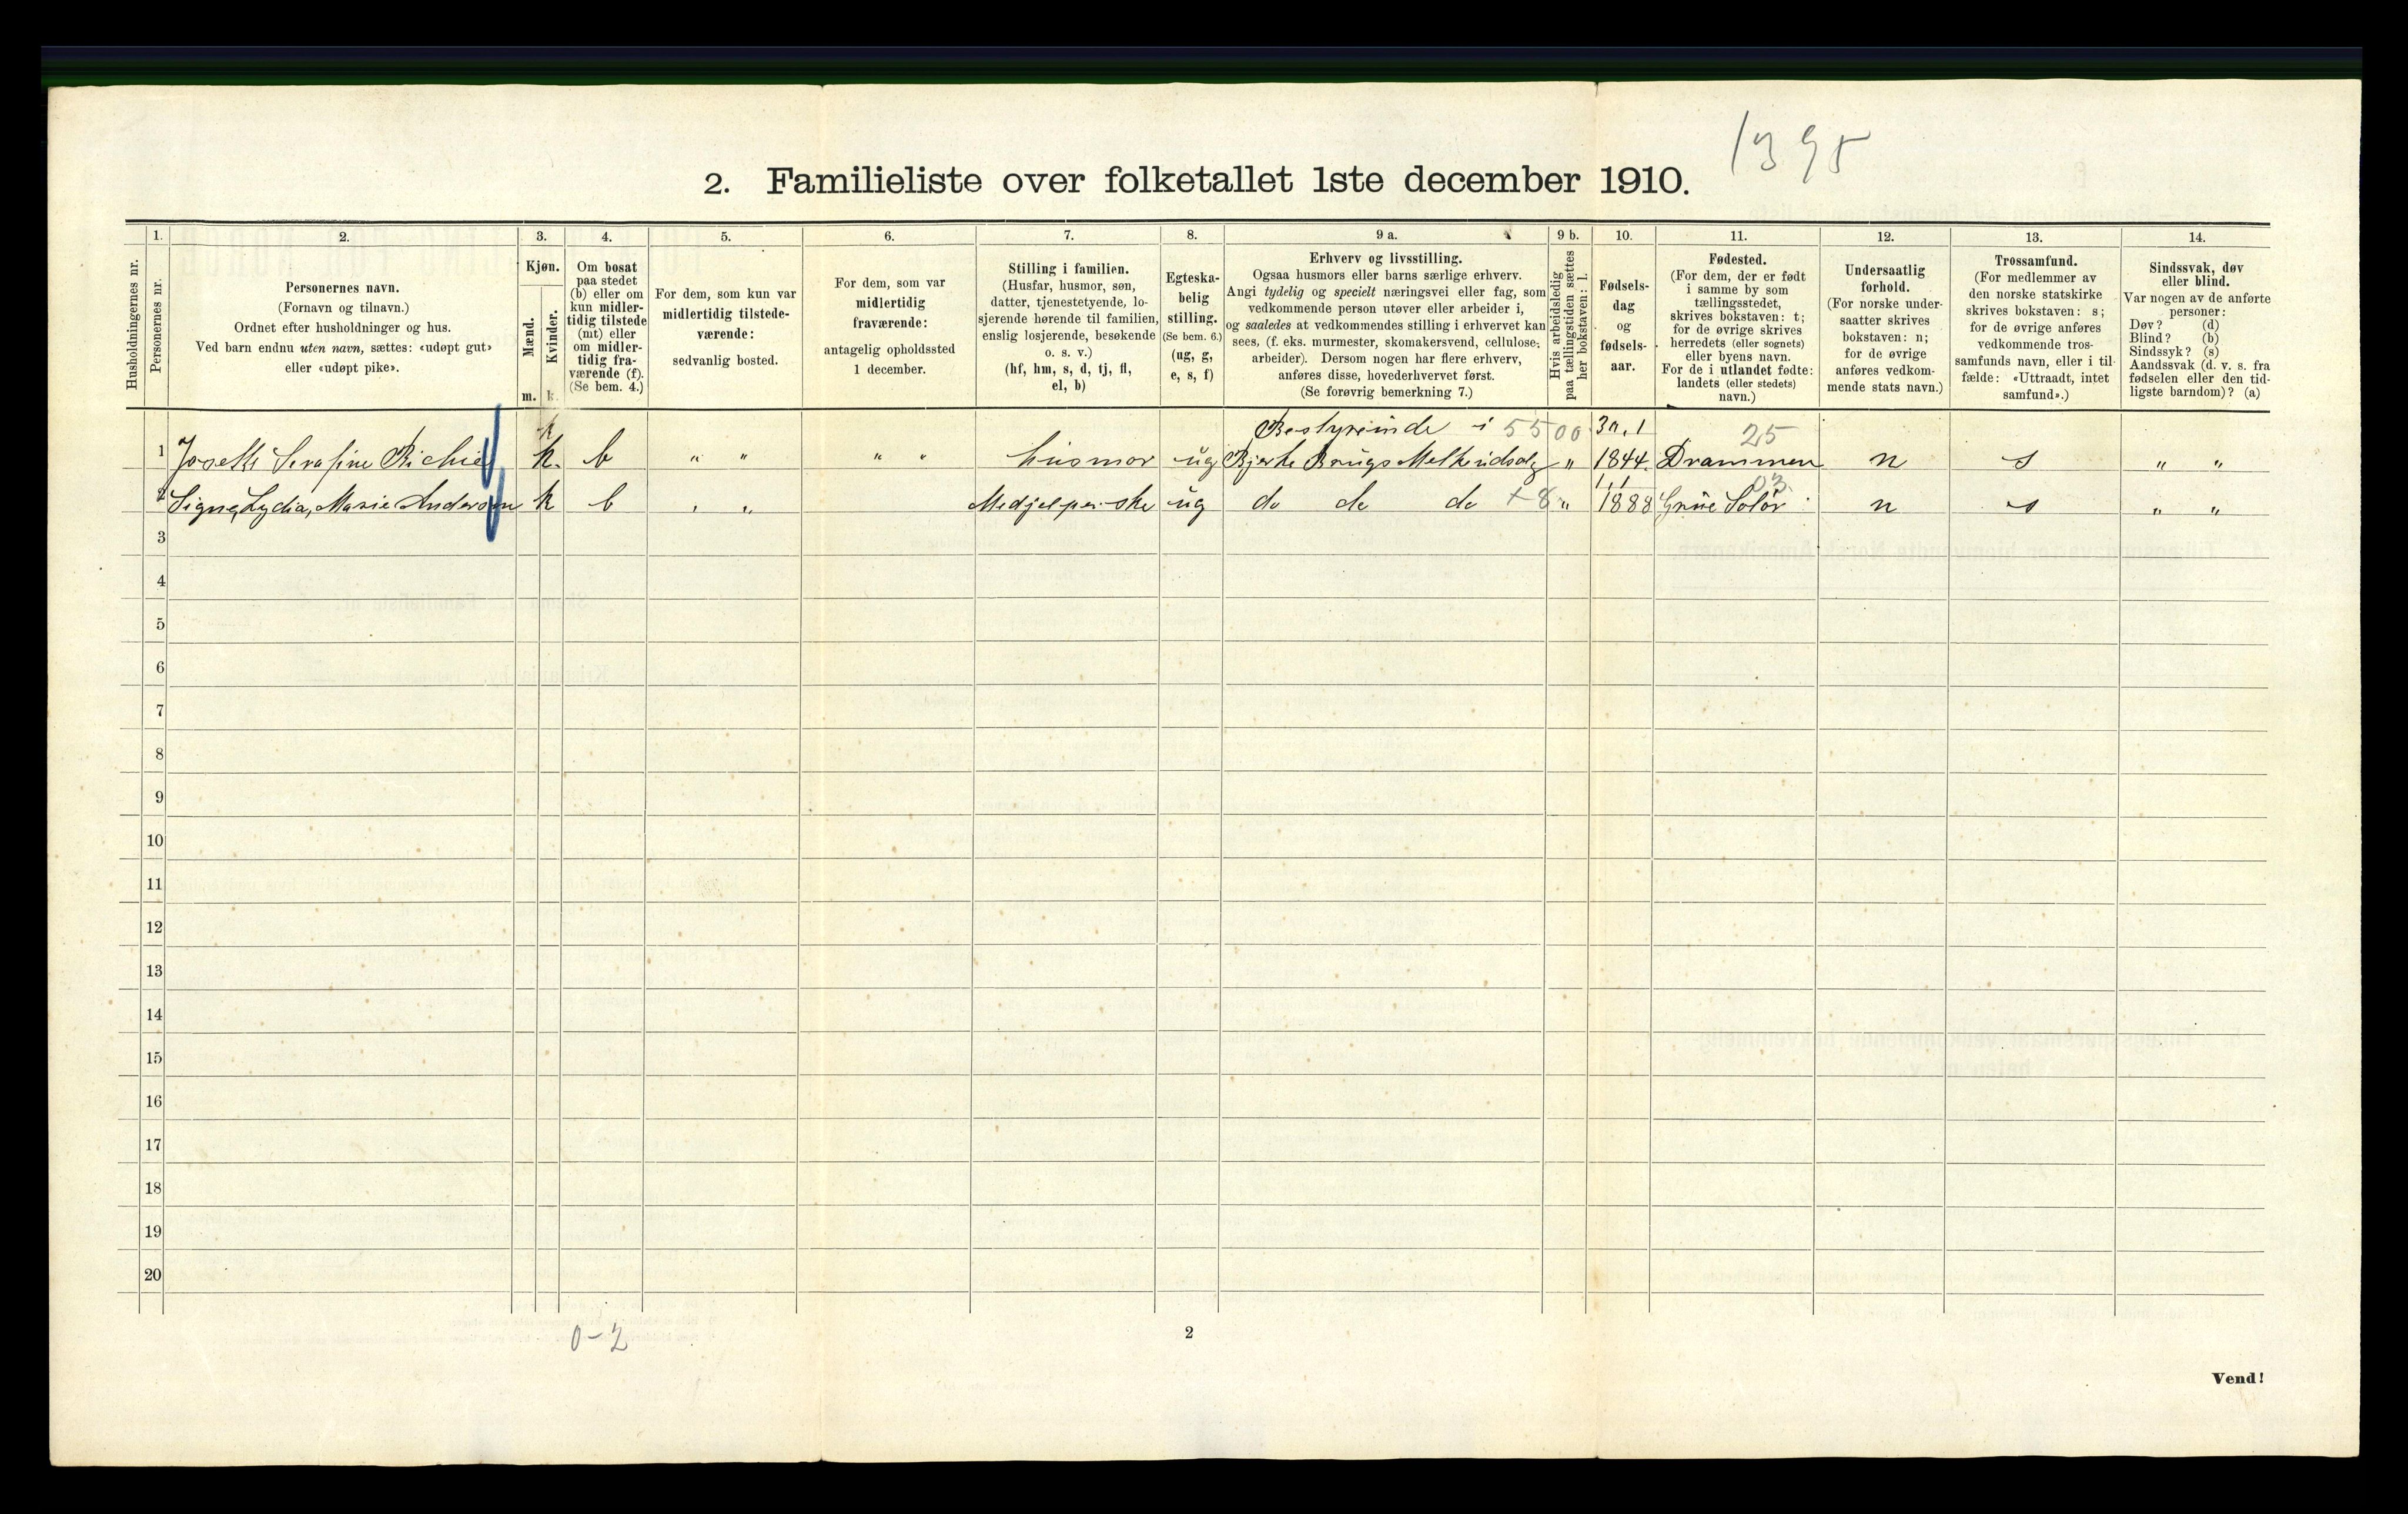 1395
2. Familieliste over folketallet 1ste december 1910.
Husholdningernes nr.
1. Personernes nr.
2. Personernes navn.
(Fornavn og tilnavn.)
Ordnet efter husholdninger og hus.
Ved barn endnu uten navn, sættes: «udøpt gut»
eller «udøpt pike».
3. Kjøn.
Mænd. m.
Kvinder. k.
4. Om bosat
paa stedet
(b) eller om
kun midler-
tidig tilstede
(mt) eller
om midler-
tidig fra-
værende (f).
(Se bem. 4.)
5. For dem, som kun var
midlertidig tilstede-
værende:
sedvanlig bosted.
6. For dem, som var
midlertidig
fraværende:
antagelig opholdssted
1 december.
7. Stilling i familien.
(Husfar, husmor, søn,
datter, tjenestetyende, lo-
sjerende hørende til familien,
enslig losjerende, besøkende
o. s. v.)
(hf, hm, s, d, tj, fl,
el, b)
8. Egteska-
belig
stilling.
(Se bem. 6.)
(ug, g,
e, s, f)
9 a. Erhverv og livsstilling.
Ogsaa husmors eller barns særlige erhverv.
Angi tydelig og specielt næringsvei eller fag, som
vedkommende person utøver eller arbeider i,
og saaledes at vedkommendes stilling i erhvervet kan
sees, (f. eks. murmester, skomakersvend, cellulose-
arbeider). Dersom nogen har flere erhverv,
anføres disse, hovederhvervet først.
(Se forøvrig bemerkning 7.)
9 b. Hvis arbeidsledig
paa tællingstiden sættes
her bokstaven: l.
10. Fødsels-
dag
og
fødsels-
aar.
11. Fødested.
(For dem, der er født
i samme by som
tællingsstedet,
skrives bokstaven: t;
for de øvrige skrives
herredets (eller sognets)
eller byens navn.
For de i utlandet fødte:
landets (eller stedets)
navn.)
12. Undersaatlig
forhold.
(For norske under-
saatter skrives
bokstaven: n;
for de øvrige
anføres vedkom-
mende stats navn.)
13. Trossamfund.
(For medlemmer av
den norske statskirke
skrives bokstaven: s;
for de øvrige anføres
vedkommende tros-
samfunds navn, eller i til-
fælde: «Uttraadt, intet
samfund».)
14. Sindssvak, døv
eller blind.
Var nogen av de anførte
personer:
Døv? (d)
Blind? (b)
Sindssyk? (s)
Aandssvak (d. v. s. fra
fødselen eller den tid-
ligste barndom)? (a)
k Bestyreinde i 5500 30.1 25
1 Josefte Serafine Richie k. b " " " " husmor ug Bjerke Brugs Melkeudsalg " 1844. Drammen n s " "
1,1 03
2 Signe, Lydia, Marie Anderson k b " " Medjelperske ug do do do +8 " 1888 Grue Solør n s " "
3
4
5
6
7
8
9
10
11
12
13
14
15
16
17
18
19
20
0-2
2
Vend!